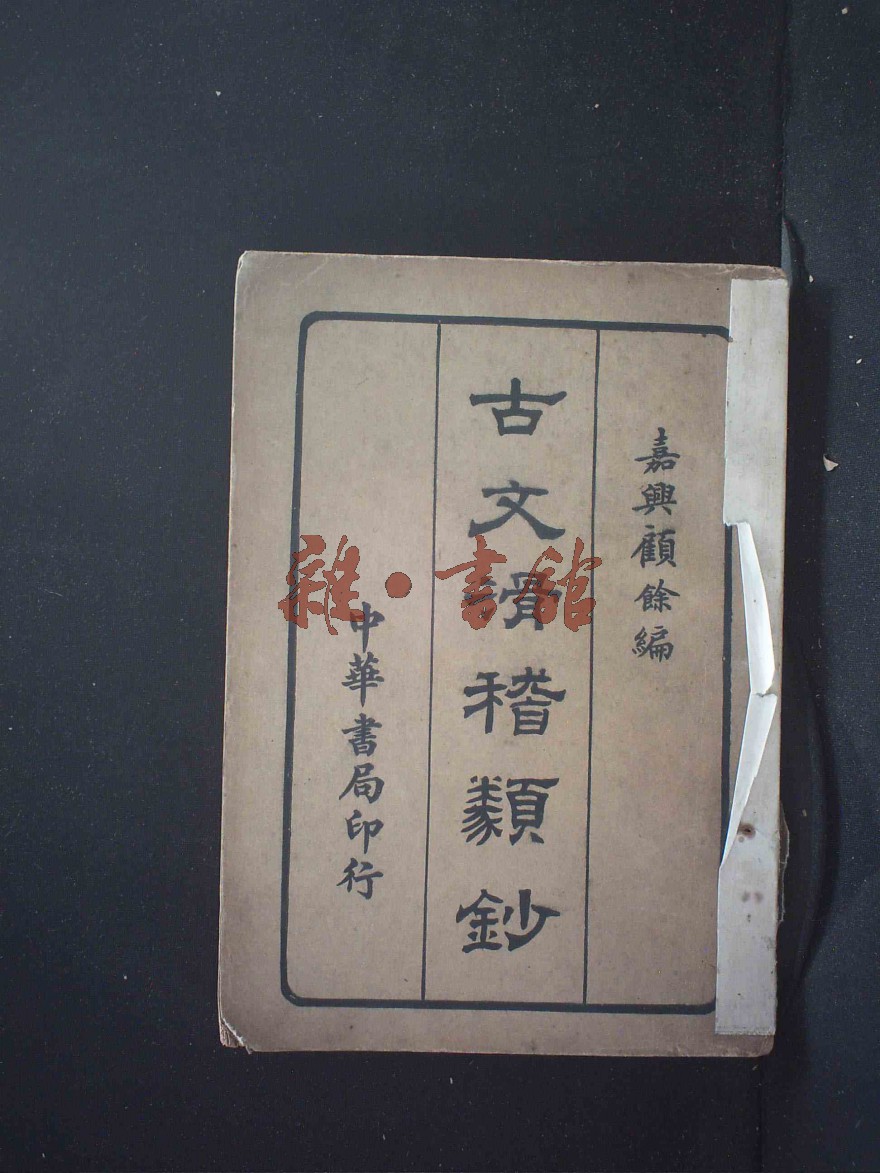 嘉興顧餘編
古文滑稽類鈔
中華書局印行
雜·書館